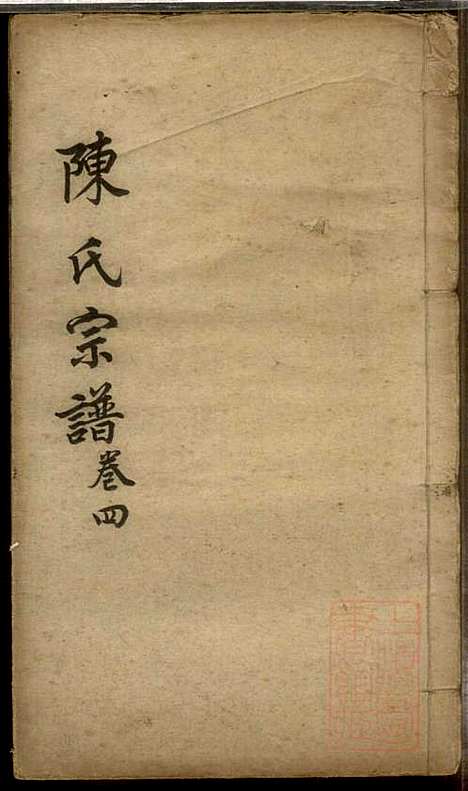 陳氏宗譜卷四